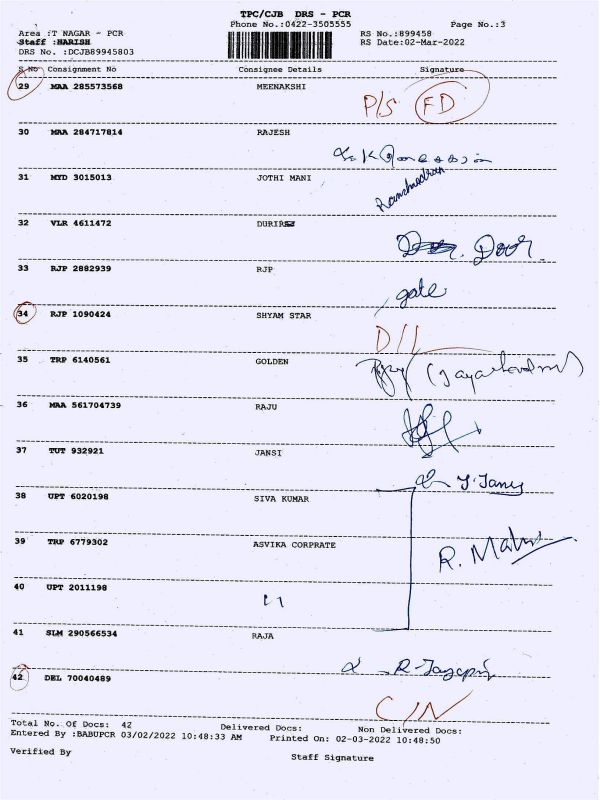 TPC/CJB DRS - PCR
Phone No.:0422-3505555 Page No.:3
Area :T NAGAR - PCR RS No.:899458
Staff :HARISH RS Date:02-Mar-2022
DRS No. :DCJB89945803
S No Consignment No Consignee Details Signature
29 MAA 285573568 MEENAKSHI
P/S FD
30 MAA 284717814 RAJESH
31 MYD 3015013 JOTHI MANI
32 VLR 4611472
Door.
33 RJP 2882939 RJP
gate
34 RJP 1090424 SHYAM STAR
D/L
35 TRP 6140561 GOLDEN
36 MAA 561704739 RAJU
37 TUT 932921 JANSI
38 UPT 6020198 SIVA KUMAR
39 TRP 6779302 ASVIKA CORPRATE
R.
40 UPT 2011198
41 SLM 290566534 RAJA
42 DEL 70040489
C/N
Total No. Of Docs: 42 Delivered Docs: Non Delivered Docs:
Entered By :BABUPCR 03/02/2022 10:48:33 AM Printed On: 02-03-2022 10:48:50
Verified By Staff Signature